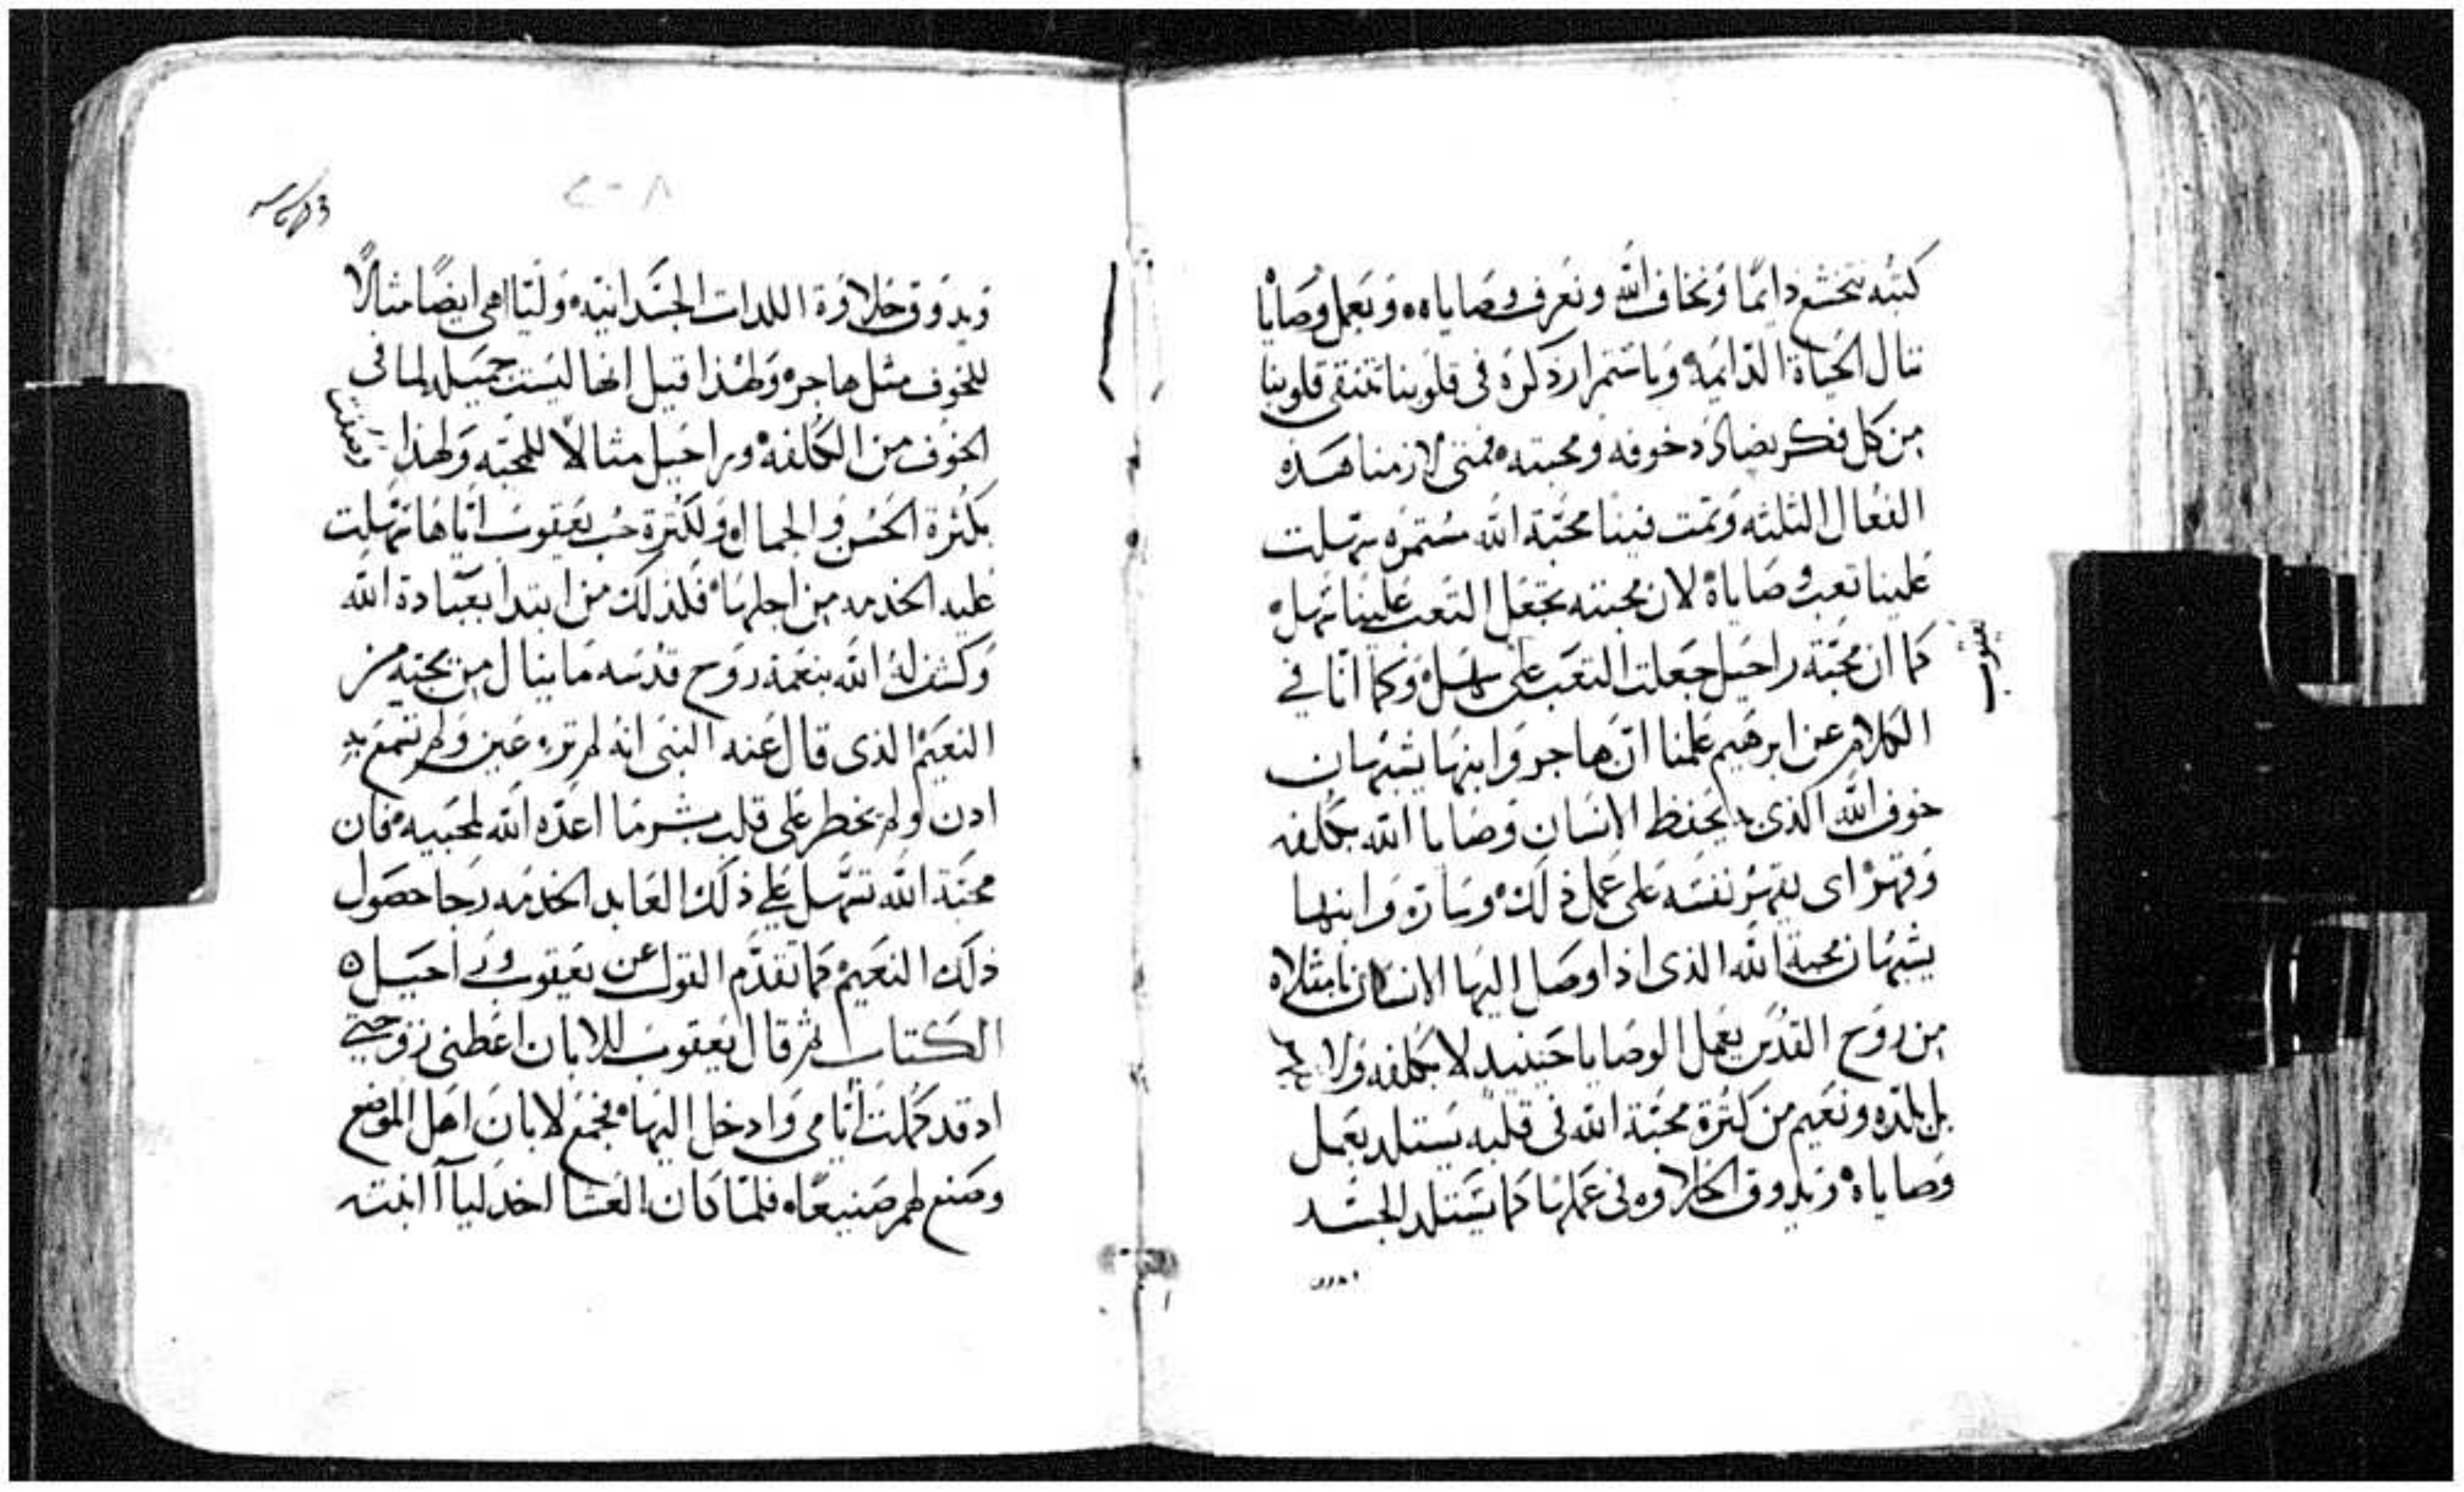 كتبه نتخشع دايمًا ونخاف الله ونعرف وصاياه ه وبعمل وصايا
ننال الحياة الدايمه وباستمرار ذكره فى قلوبنا تتنقى قلوبنا
من كل فكر يضادد خوفه ومحبته فمتى لازمنا هذه
الفعال الثلثه وتمت فينا محبة الله مستمره تسهلت
علينا تعب وصاياه لان محبته تجعل التعب علينا سهل
كما ان محبة راحيل جعلت التعب على سهل وكما اننا في
يعقوب
الكلام عن ابرهيم علمنا ان هاجر وابنها يشبهان
خوف الله الذى به يحفظ الانسان وصايا الله بكلفه
وقهر اى يقهر نفسه على عمل ذلك وساره وابنها
يشبهان محبة الله الذى اذا وصل اليها الانسان بامتلاه
من روح القدس يعمل الوصايا حينيد لا بكلفه ولا
بل بلذه ونعيم من كثرة محبة الله فى قلبه يستلد بعمل
وصاياه ويدوق الحلاوه فى عملها كما يستلد الجسد
ويدوق حلاوة اللدات الجسدانيه ولئا هى ايضًا مثالًا
للخوف مثل هاجر ولهذا قيل انها ليست جميله لما فى
الخوف من الكلفه وراحيل مثالًا للمحبه ولهذا وصفت
بكثرة الحسن والجمال ولكثرة حب يعقوب اياها تسهلت
عليه الخدمه من اجلها فلذلك من ابتدا بعبادة الله
وكشف له الله بنعمة روح قدسه ما ينال من محبته من
النعيم الذى قال عنه النبى انه لم تره عين ولم تسمع به
ادن ولم يخطر على قلب بشر ما اعده الله لمحبيه فان
محبة الله تسهل على ذلك العابد الخدمه رجا حصول
ذلك النعيم كما تقدم القول عن يعقوب وراحيل ه
الكتاب ثم قال يعقوب للابان اعطنى زوجتي
اد قد كملت أيامى وادخل اليها فجمع لابان اهل الموضع
وصنع لهم صنيعًا ه فلما كان العشا اخد ليا ابنته